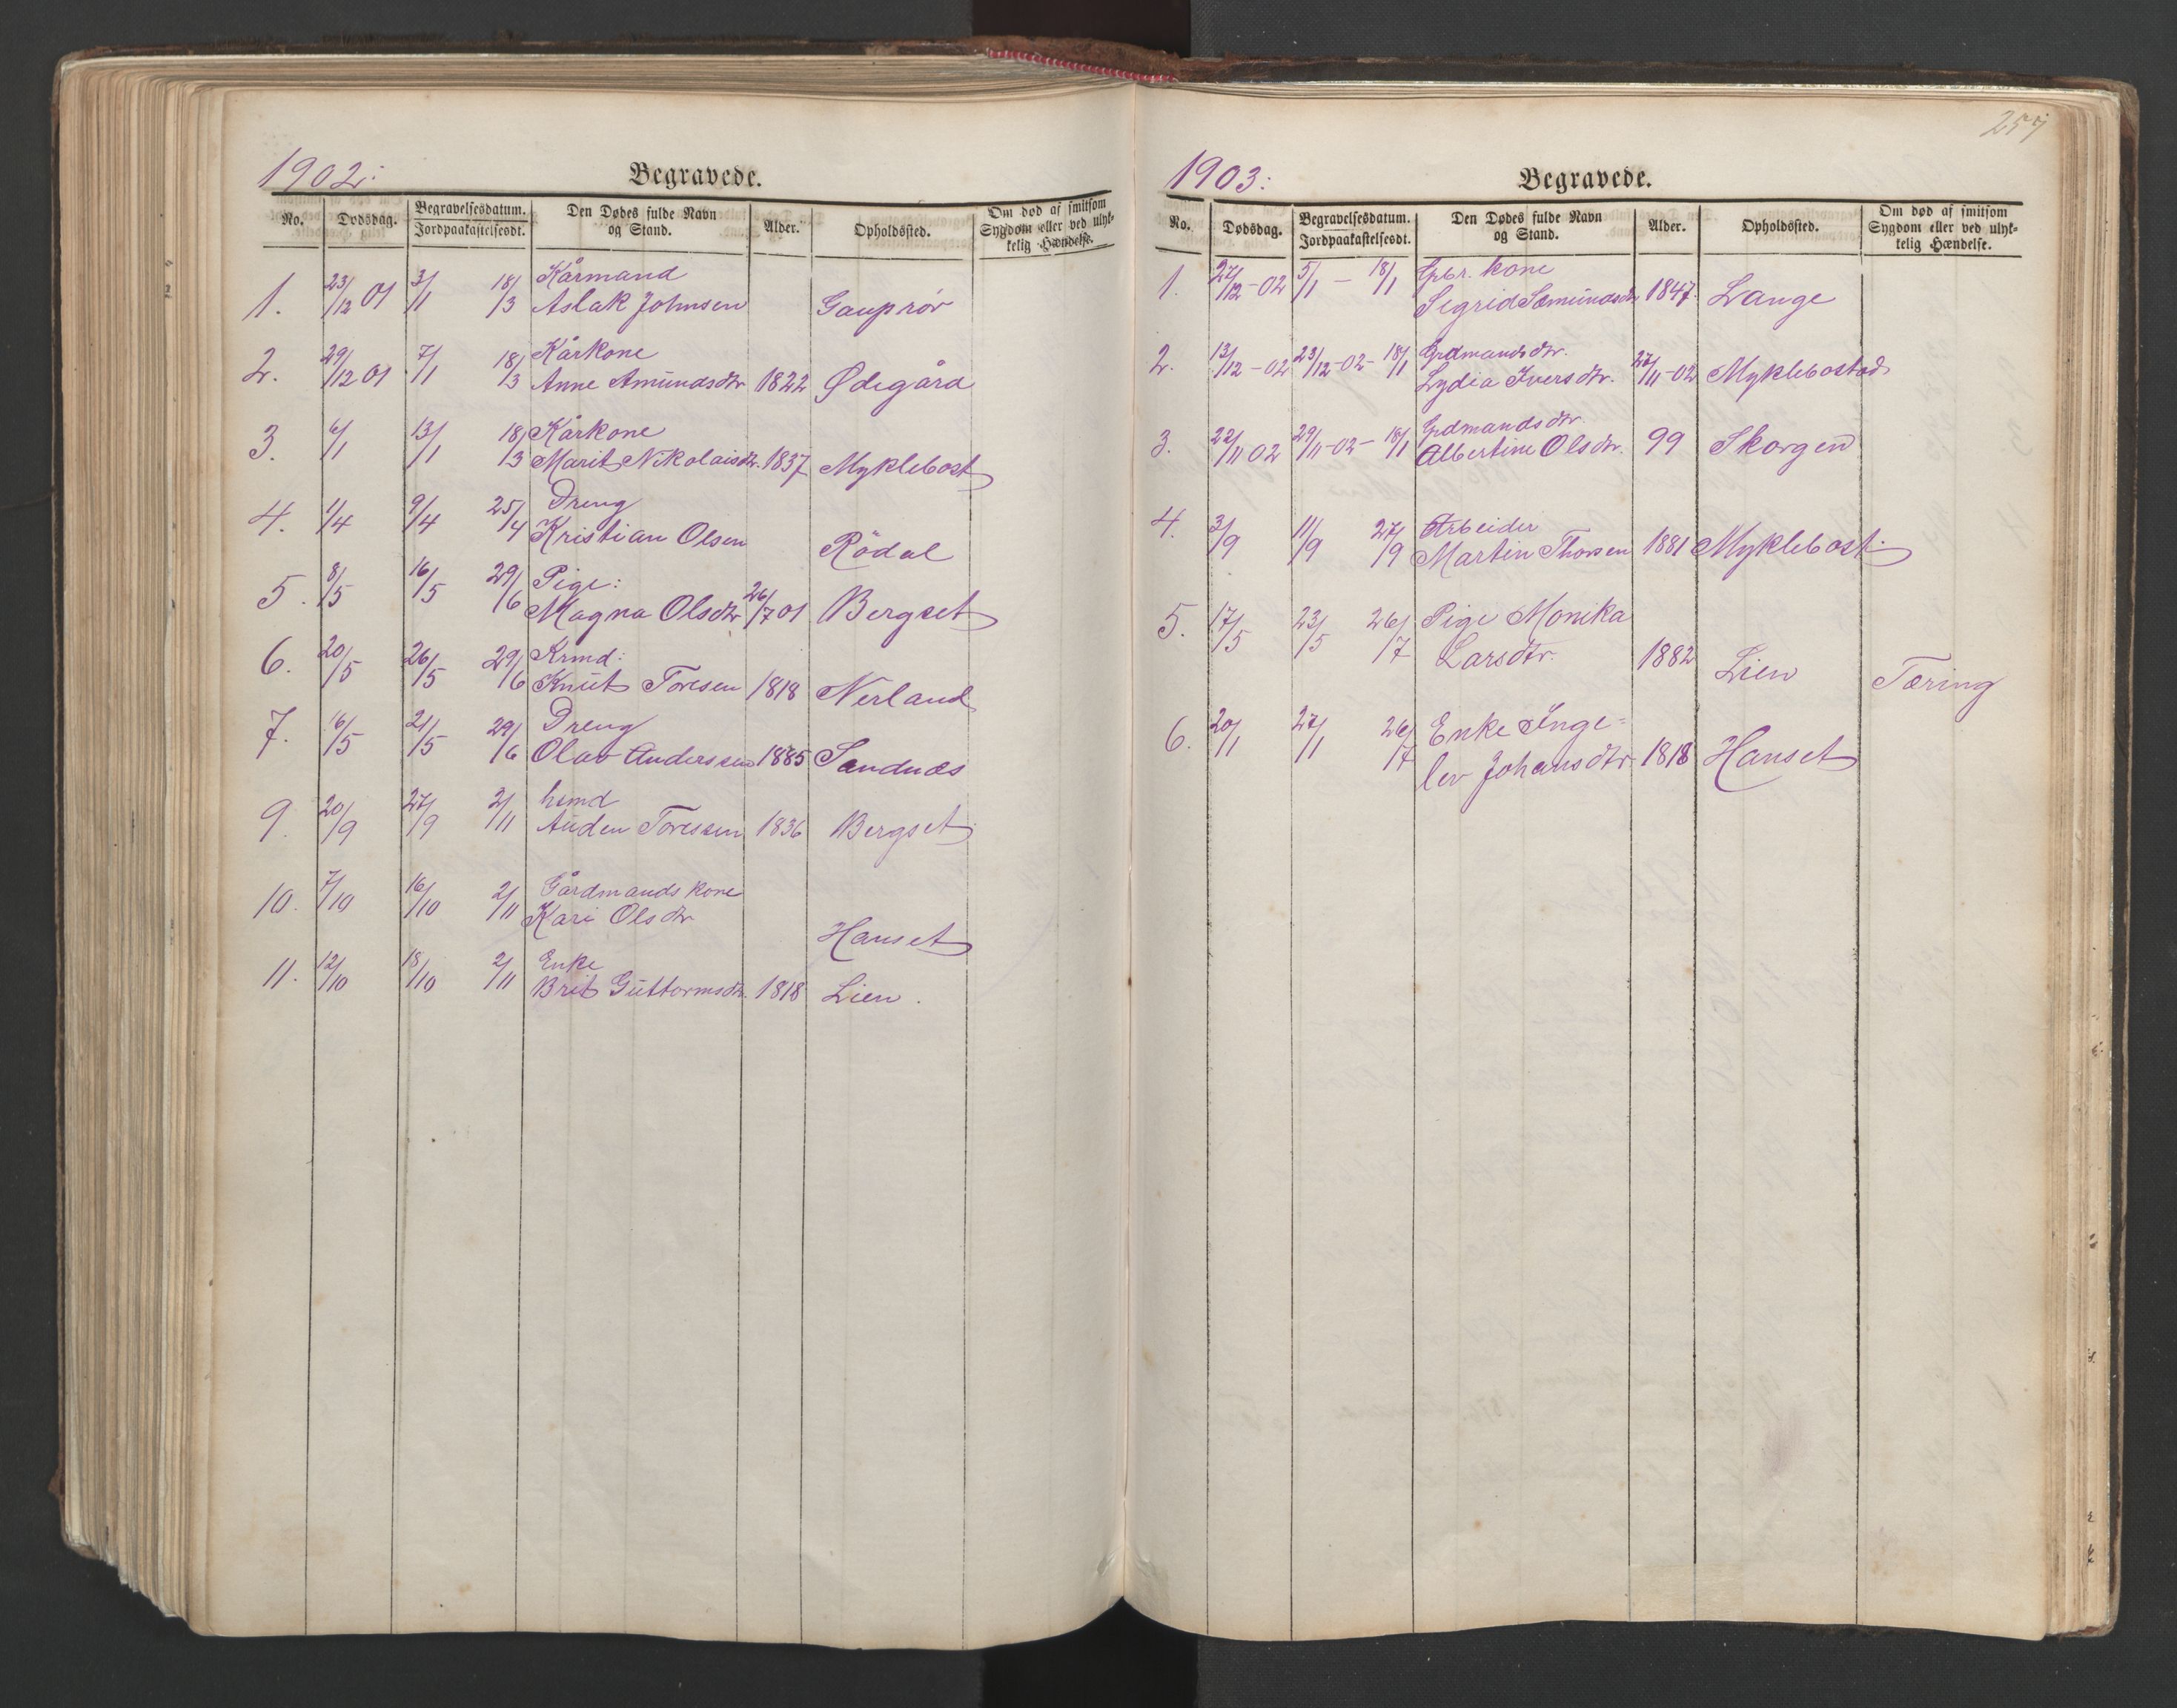 1902:
Begravede.
No. Dødsdag. Begravelsesdatum. Jordpaakastelsesdt. Den Dødes fulde Navn og Stand. Alder. Opholdssted. Om død af smitsom Sygdom eller ved ulykkelig Hændelse.
Kårmand
1. 23/12 01 3/1 18/3 Aslak Johnsen Gauprör
Kårkone
2. 29/12 01 7/1 18/3 Anne Amundsdtr 1822 Ødegård
Kårkone
3. 6/1 13/1 18/3 Marit Nikolaisdtr. 1837 Myklebost
Dreng
4. 1/4 9/4 25/4 Kristian Olsen Rödal
Pige:
5. 8/5 16/5 29/6 Magna Olsdtr 26/7 01 Bergset
Krmd:
6. 20/5 26/5 29/6 Knut Toresen 1818 Nerland
Dreng
7. 16/5 21/5 29/6 Olav Anderssen 1885 Sandnæs
hsmd
9. 20/9 27/9 2/11 Auden Toressen 1836 Bergset
Gårdmands kone
10. 7/10 16/10 2/11 Kari Olsdtr Hanset
Enke
11. 12/10 18/10 2/11 Brit Guttormsdtr. 1818 Lien.
257
1903:
Begravede.
No. Dødsdag. Begravelsesdatum. Jordpaakastelsesdt. Den Dødes fulde Navn og Stand. Alder. Opholdssted. Om død af smitsom Sygdom eller ved ulykkelig Hændelse.
Gbr. kone
1. 27/12-02 5/1 - 18/1 Segrid Sæmundsdtr 1847. Lange
Grdmandsdtr.
2. 13/12-02 23/12-02- 18/1 Lydia Iversdtr. 27/11-02 Myklebostad
Grdmandsdtr.
3. 22/11 02 29/11-02- 18/1 Albertine Olsdtr. 99 Skorgen
Arbeider
4. 3/9 11/9 27/9 Martin Thorsen 1881 Myklebost.
5. 17/5 23/5 26/7 Pige Monika
Larsdtr. 1882 Lien Tæring
6. 20/1 27/1 26/7 Enke Inge=
lev Johansdtr 1818 Hanset